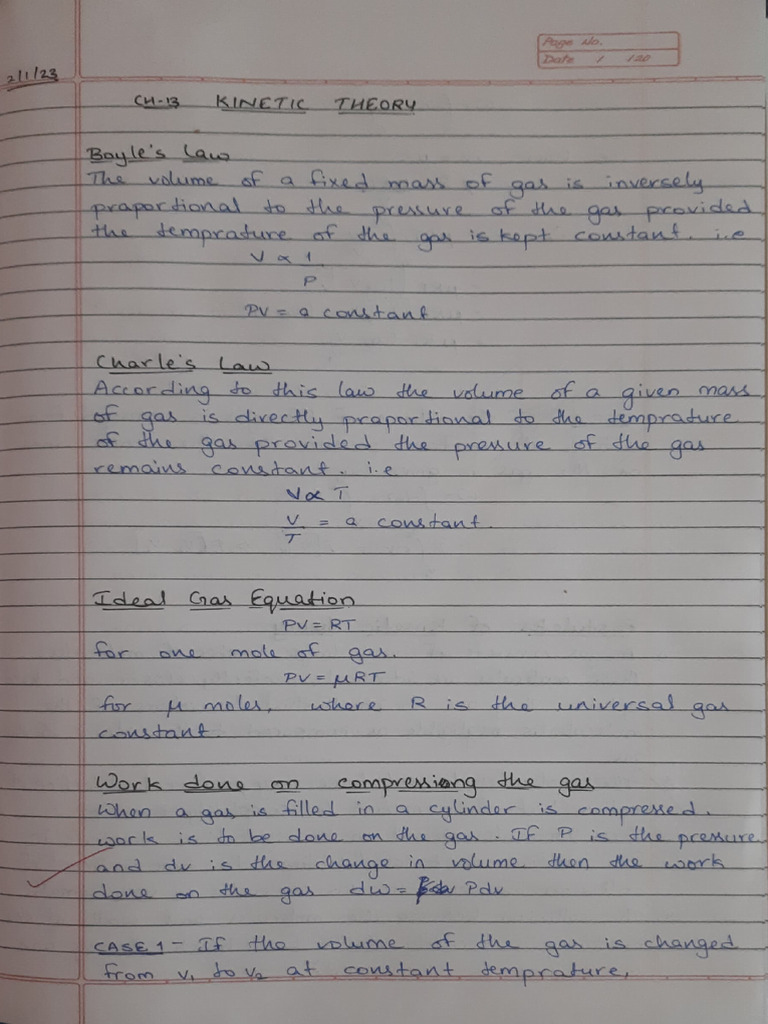 Page No.
Date / /20
2/1/23
CH-13 KINETIC THEORY
Boyle's Law
The volume of a fixed mass of gas is inversely
praportional to the pressure of the gas provided
the temprature of the gas is kept constant. i.e
V ∝ 1
P
PV = a constant
Charle's Law
According to this law the volume of a given mass
of gas is directly praportional to the temprature
of the gas provided the pressure of the gas
remains constant. i.e
V ∝ T
V
T = a constant.
Ideal Gas Equation
PV = RT
for one mole of gas.
PV = μRT
for μ moles, where R is the universal gas
constant
Work done on compressiong the gas
When a gas is filled in a cylinder is compressed.
work is to be done on the gas. If P is the pressure
and dv is the change in volume then the work
done on the gas dw = Pdv
CASE 1 - If the volume of the gas is changed
from V₁ to V₂ at constant temprature,